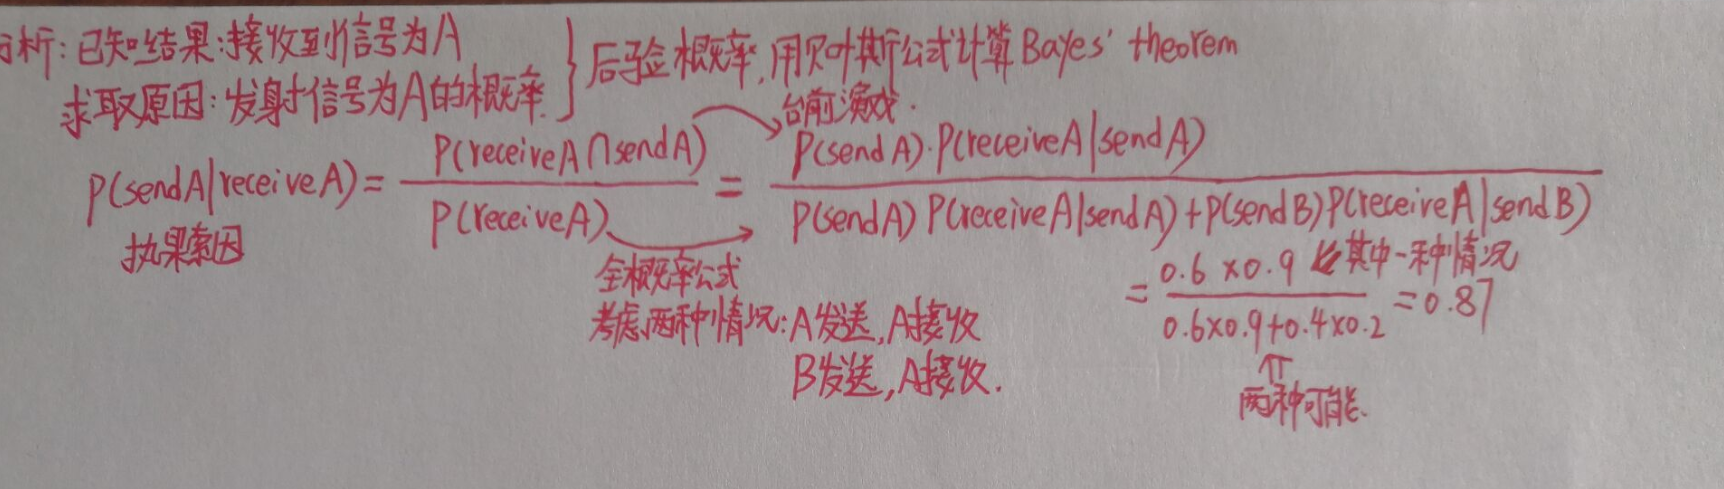 析: 已知结果:接收到信号为A
求取原因:发射信号为A的概率.
后验概率,用贝叶斯公式计算Bayes' theorem
台前演戏.
P(sendA|receiveA)= P(receiveA∩sendA) / P(receiveA) = P(sendA)·P(receiveA|sendA) / P(sendA)P(receiveA|sendA)+P(sendB)P(receiveA|sendB)
执果索因
全概率公式
考虑两种情况:A发送,A接收
B发送,A接收.
= 0.6×0.9 / 0.6×0.9+0.4×0.2 =0.87
其中一种情况
两种可能.